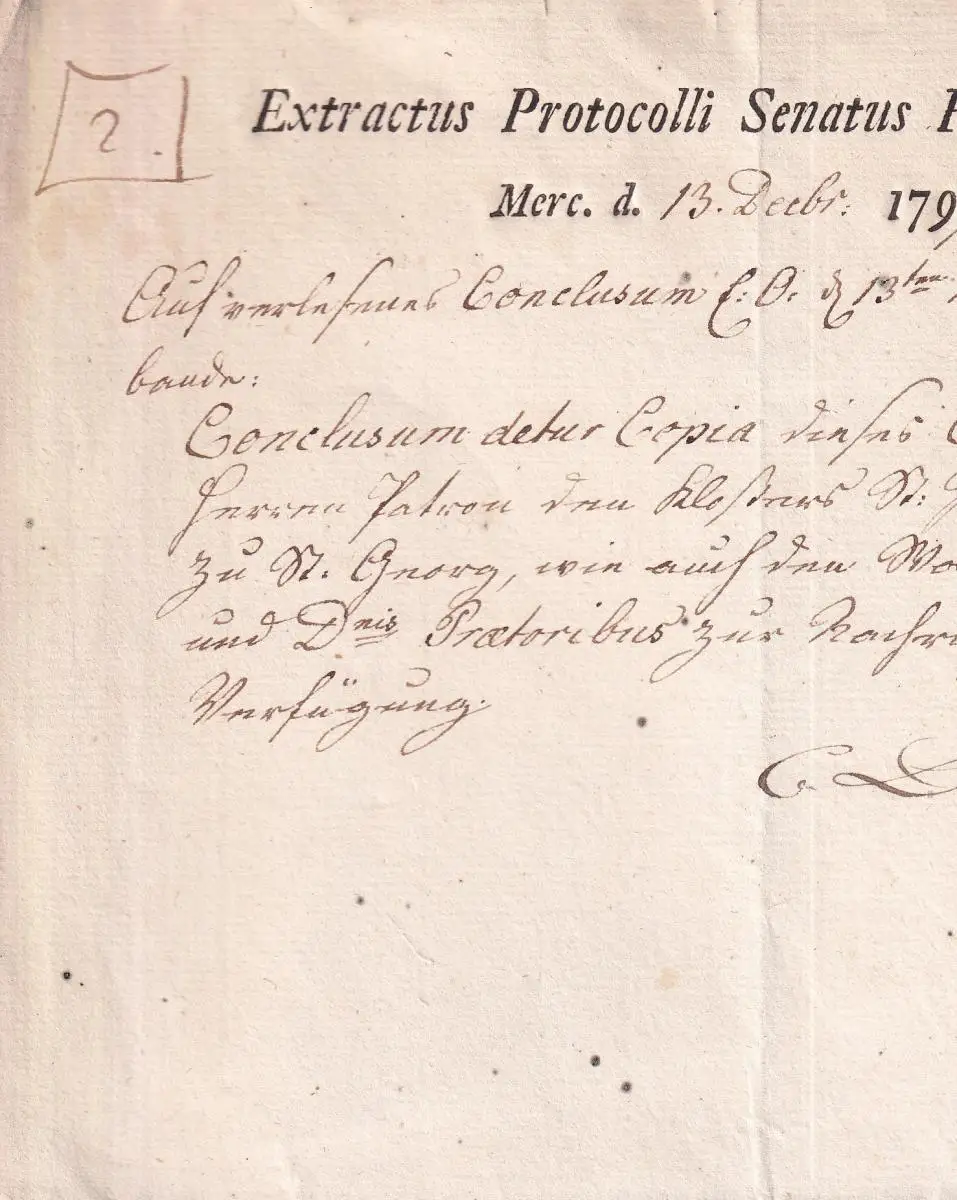 2.
Extractus Protocolli Senatus
Merc. d. 13. Decbr: 179
Auf verlesenes Conclusum E: O: d 13ten
bande:
Conclusum detur Copia dieses
Herren Patron den Klosters St:
zu St. Georg, wie auch den
und Dnis Prætoribus zur
Verfügung.